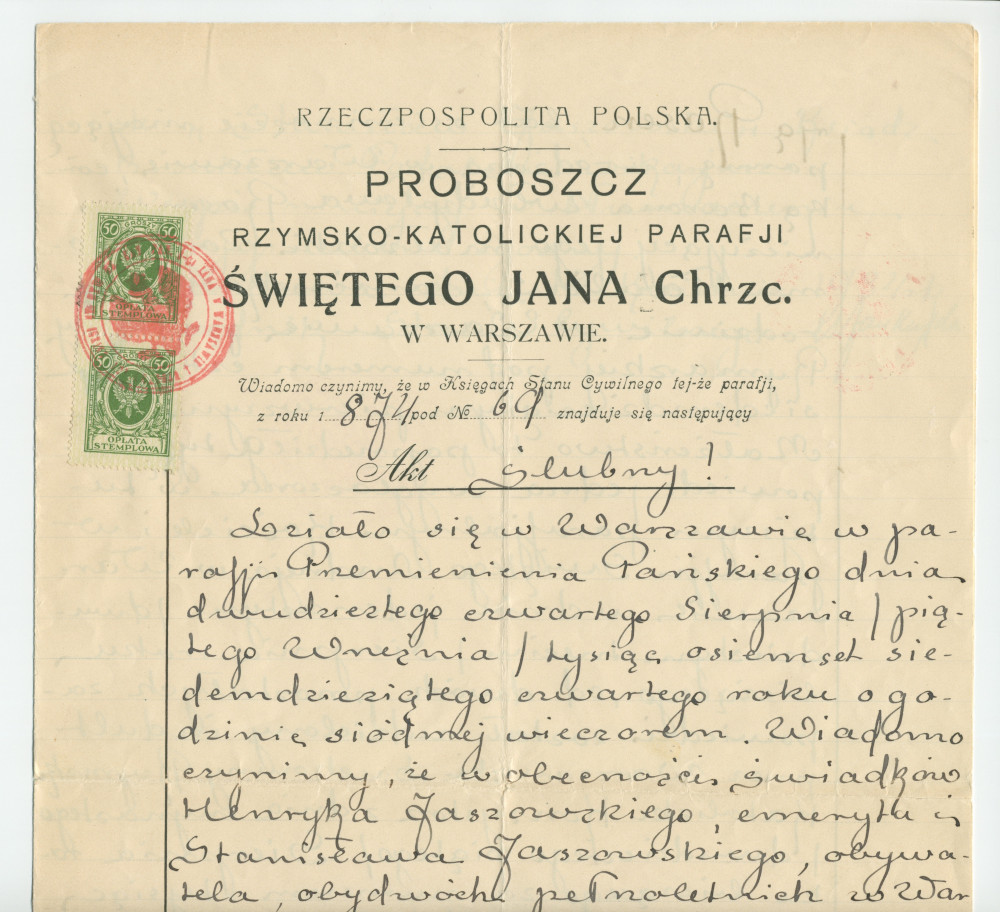 RZECZPOSPOLITA POLSKA.
PROBOSZCZ
RZYMSKO-KATOLICKIEJ PARAFJI
ŚWIĘTEGO JANA Chrzc.
W WARSZAWIE.
50 GROSZY 50
OPŁATA
STEMPLOWA
50 50
OPŁATA
STEMPLOWA
Wiadomo czynimy, że w Księgach Stanu Cywilnego tej-że parafji,
z roku 1874 pod № 69 znajduje się następujący
Akt Ślubny!
Działo się w Warszawie w pa-
rafji Przemienienia Pańskiego dnia
dwudziestego czwartego Sierpnia / pią-
tego Września / tysiąc osiemset sie-
demdziesiątego czwartego roku o go-
dzinie siódmej wieczorem. Wiadomo
czynimy, że w obecności świadków
Henryka Jaszowskiego, emeryta i
Stanisława Jaszowskiego, obywa-
tela, obydwóch pełnoletnich w War